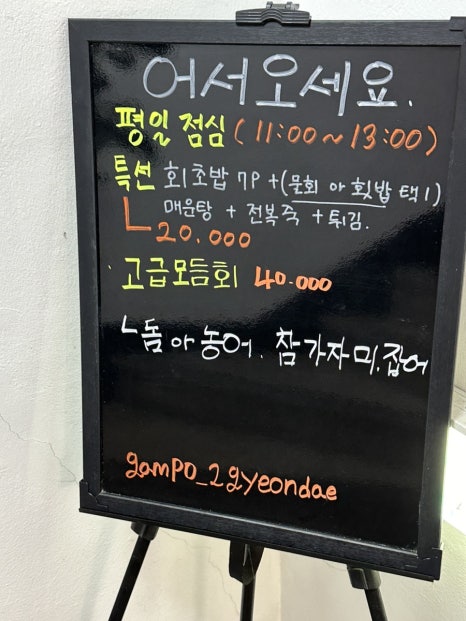 어서오세요.
평일 점심 (11:00~13:00)
특선 회초밥 7P + (물회 or 회밥 택1)
매운탕 + 전복죽 + 튀김.
ㄴ20.000
고급모듬회 40.000
ㄴ돔 or 농어. 참가자미. 잡어
gampo_2gyeondae